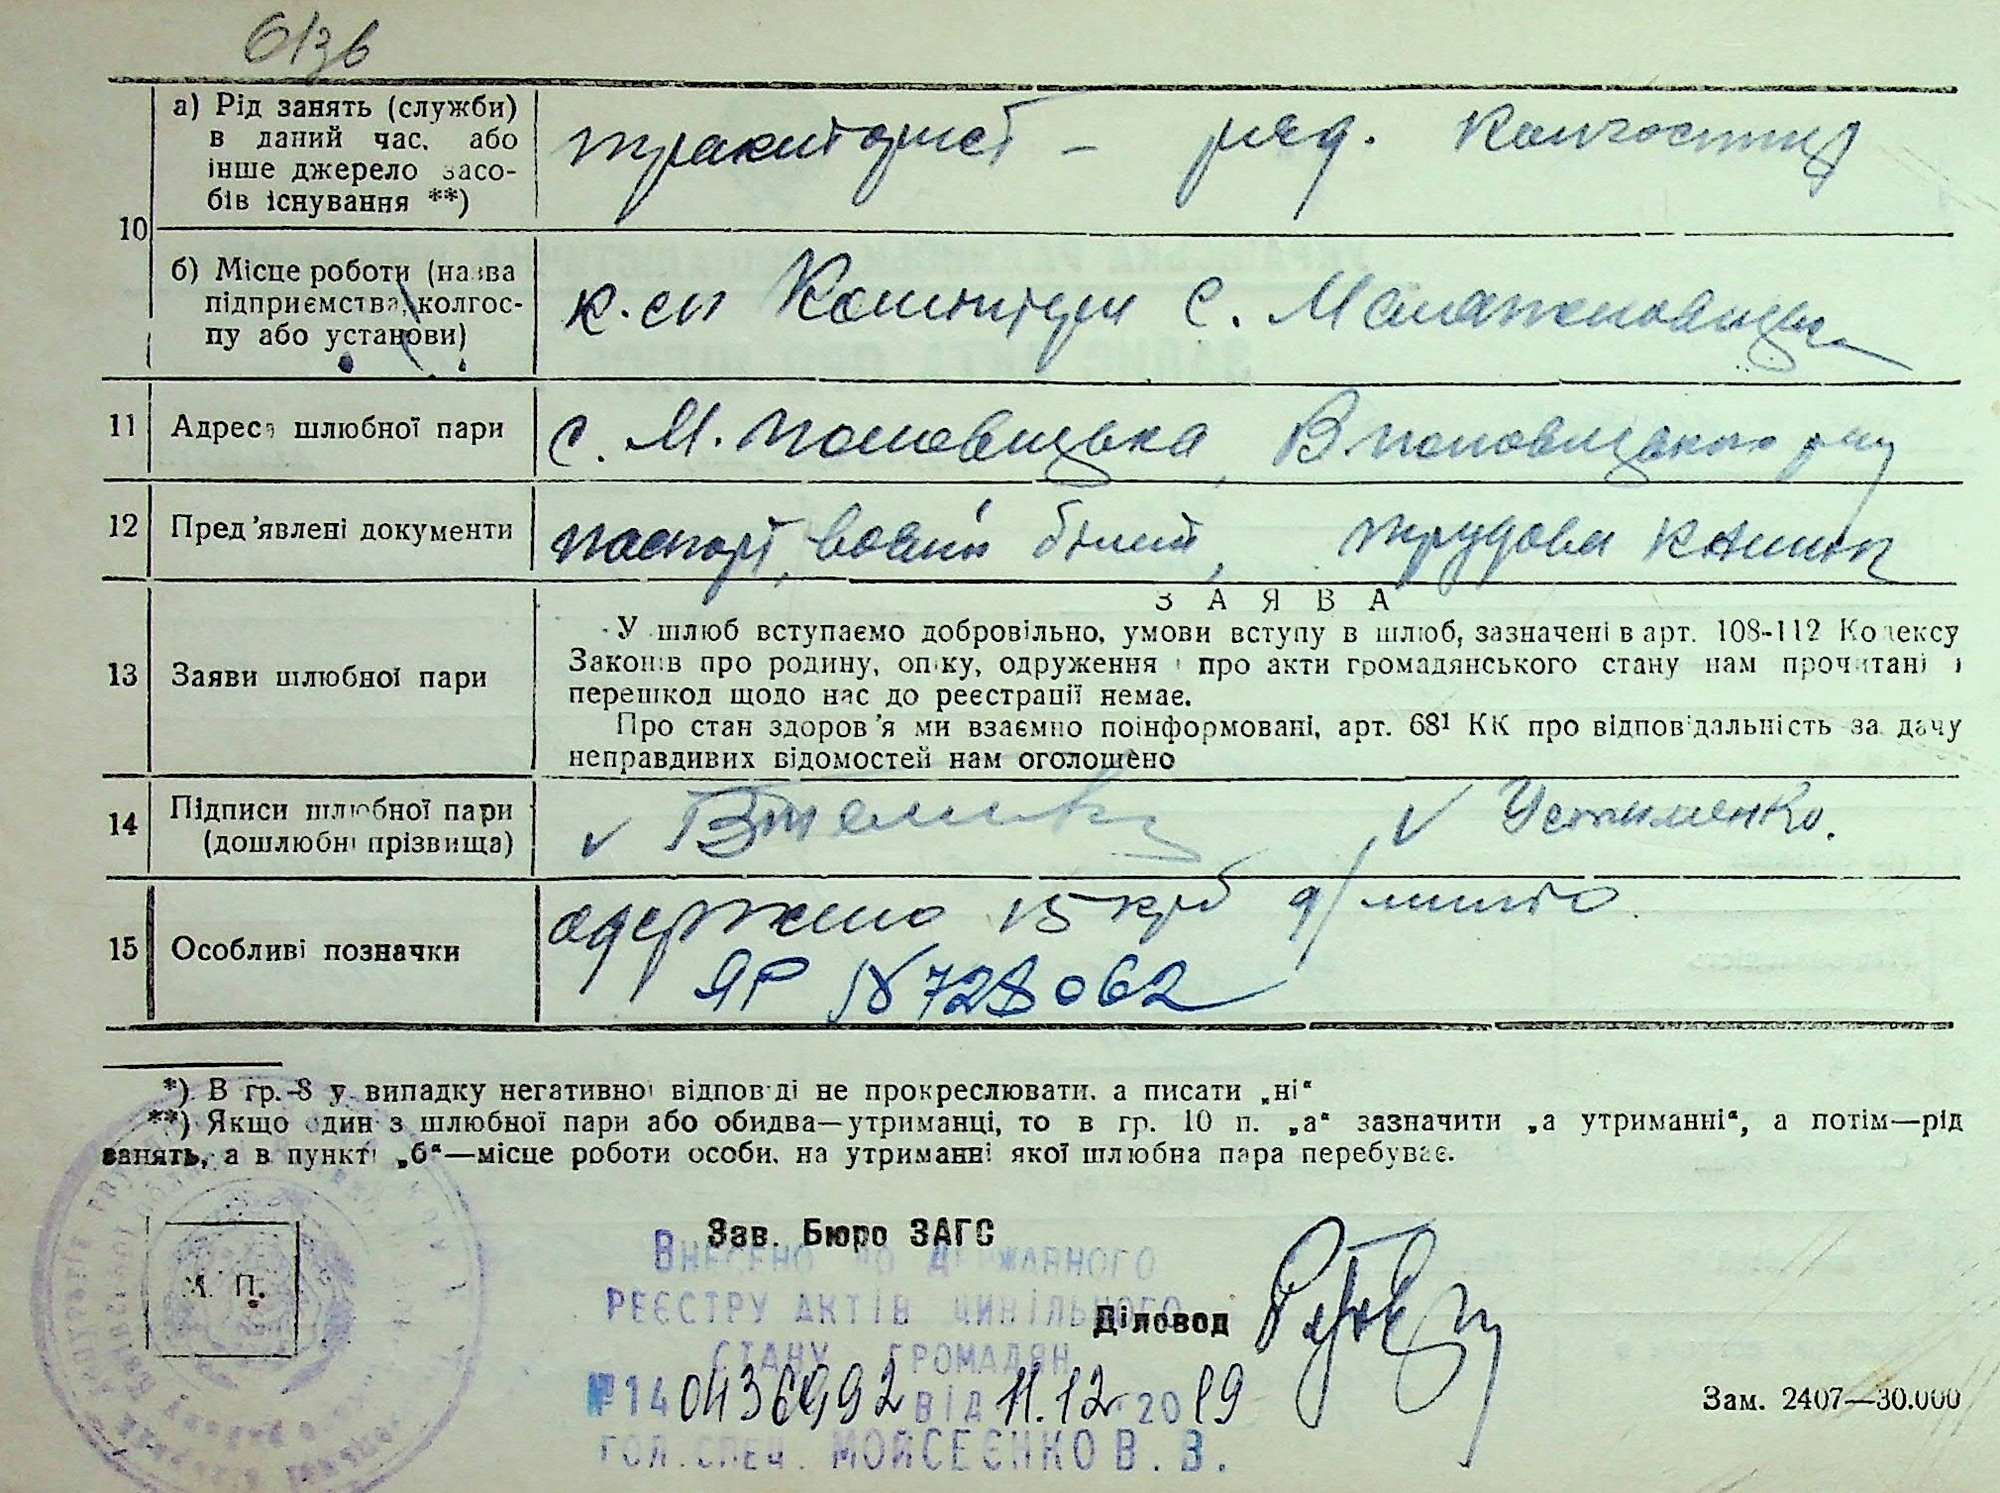 а) Рід занять (служби)
в даний час, або
інше джерело засо-
бів існування **)
тракторист - ряд. колгоспниця
10
б) Місце роботи (назва
підприємства, колгос-
пу або установи)
к-сп Комінтерн с. Малаполовецьк
11 Адреса шлюбної пари
с. М. половецька, В. половецького р-ну
12 Пред'явлені документи
паспорт, воєний білет, трудова книжк
13 Заяви шлюбної пари
ЗАЯВА
У шлюб вступаємо добровільно, умови вступу в шлюб, зазначені в арт. 108-112 Кодексу
Законів про родину, опіку, одруження і про акти громадянського стану нам прочитані і
перешкод щодо нас до реєстрації немає.
Про стан здоров'я ми взаємно поінформовані, арт. 68¹ КК про відповідальність за дачу
неправдивих відомостей нам оголошено
14 Підписи шлюбної пари
(дошлюбні прізвища)
v v Устименко.
15 Особливі позначки
одержано 15 крб
ЯР № 728062
*) В гр. 8 у випадку негативної відповіді не прокреслювати, а писати „ні“
**) Якщо один з шлюбної пари або обидва—утриманці, то в гр. 10 п. „а“ зазначити „а утриманні“, а потім—рід
занять, а в пункті „б“—місце роботи особи, на утриманні якої шлюбна пара перебуває.
М. П.
Зав. Бюро ЗАГС
Внесено до Державного
реєстру актів цивільного
Діловод
стану громадян
№ 14 від 11.12 2019
гол. спец. Мойсеєнко В. В.
Зам. 2407—30.000